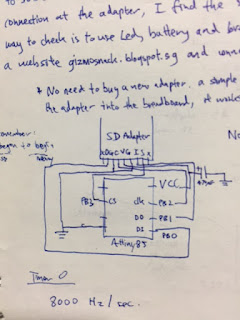 connection at the adapter, I find the
way to check is to use Led, battery and
a website gizmosnack.blogspot.sg and
* No need to buy a new adapter. a simple
the adapter into the breadboard, it
SD Adapter
begin to begin
VCC
PB3
CS
clk
PB2
DO
PB1
DI
PB0
Attiny85
Timer 0
8000 Hz / sec.